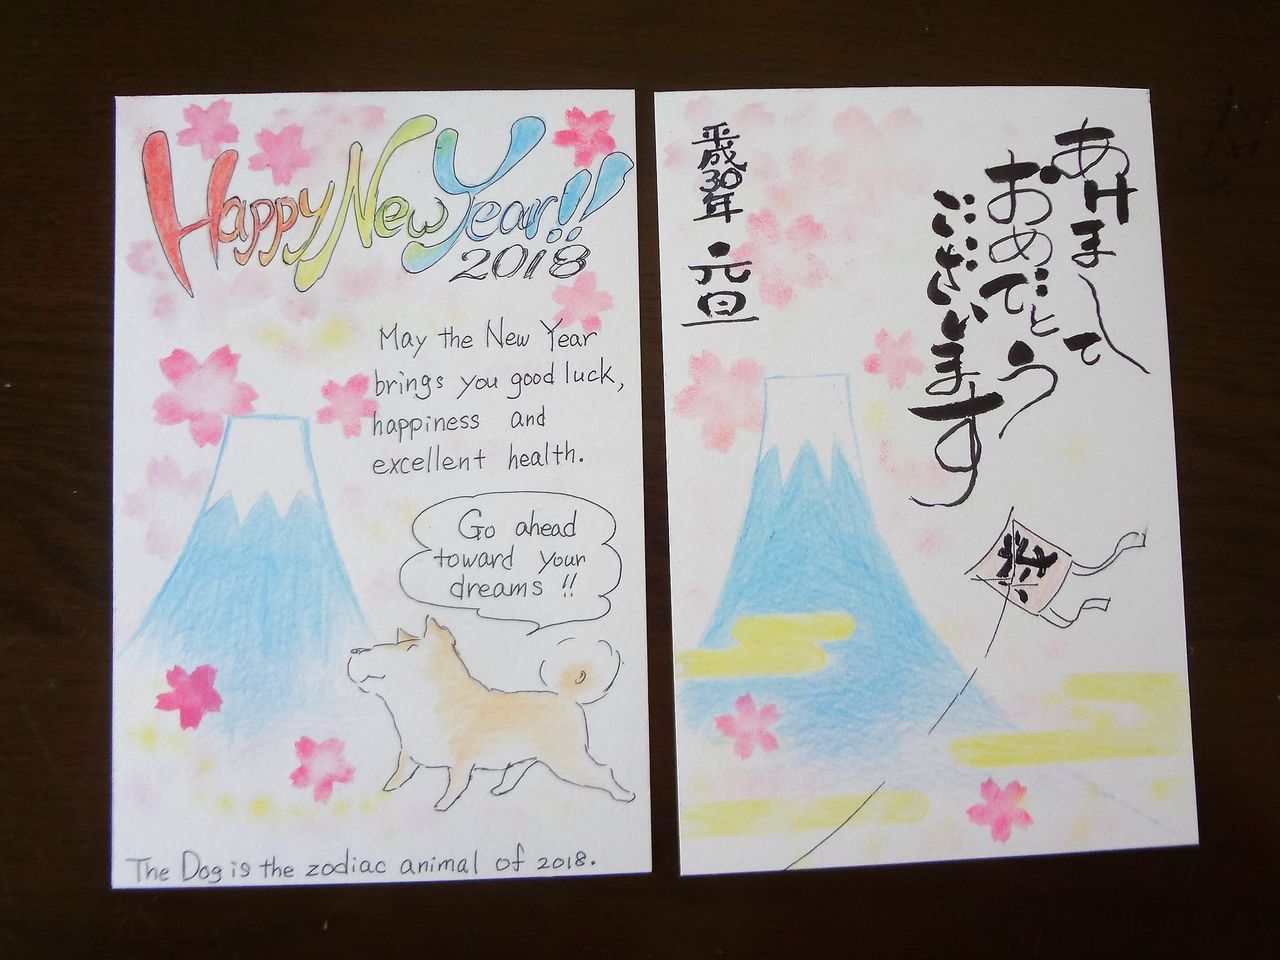 Happy New Year!!
2018
May the New Year
brings you good luck,
happiness and
excellent health.
Go ahead
toward your
dreams !!
The Dog is the zodiac animal of 2018.
あけまして
おめでとう
ございます
平成30年 元旦